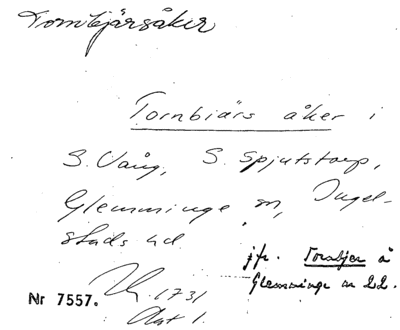 Tornbjärsåker
Tornbiärs åker i
S. Vång, S. Spjutstorp,
Glemminge sn, Ingel-
stads hd
jfr. Tornbjer å
Glemminge nr 22.
1731
Akt 1.
Nr 7557.